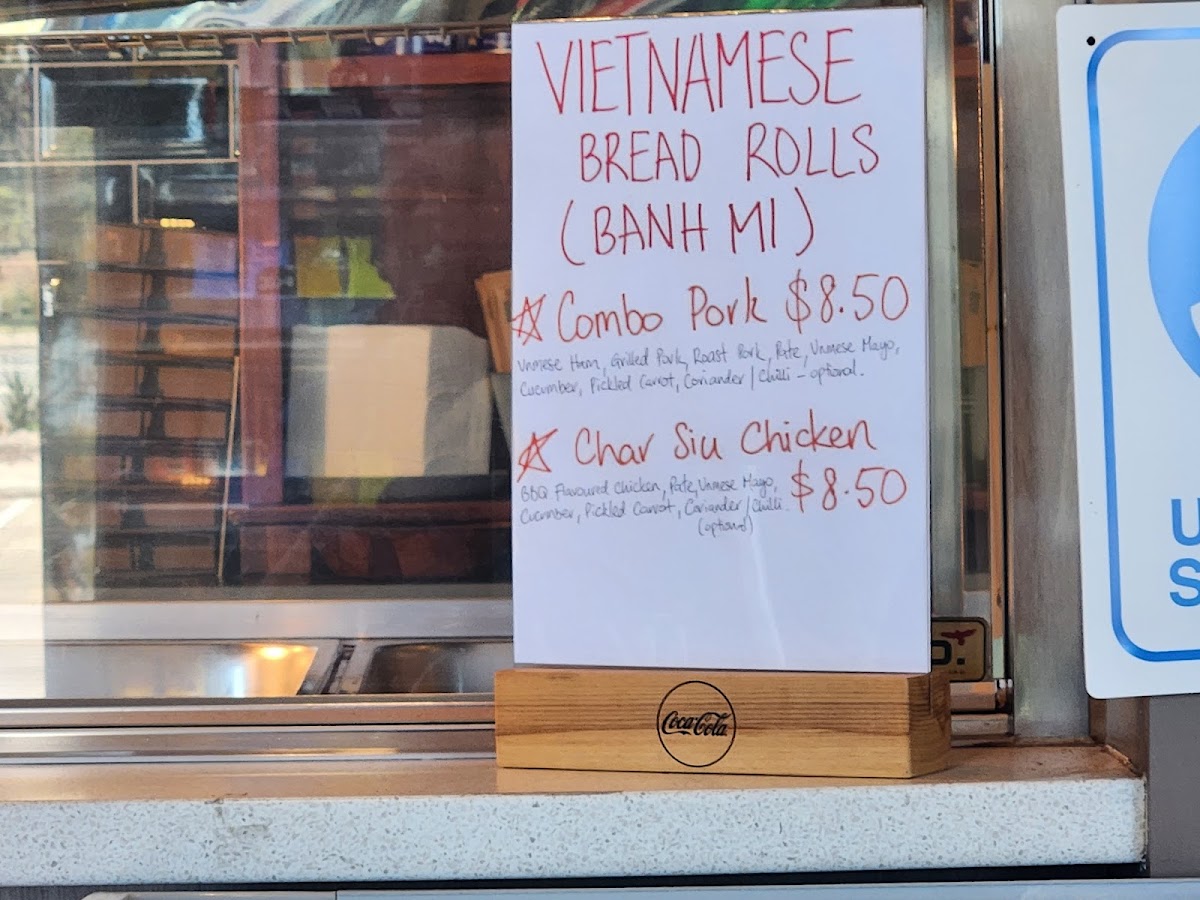 VIETNAMESE
BREAD ROLLS
(BANH MI)
☆ Combo Pork $8.50
Vnmese Ham, Grilled Pork, Roast Pork, Pate, Vnmese Mayo,
Cucumber, Pickled Carrot, Coriander / Chilli - optional.
☆ Char Siu Chicken
$8.50
BBQ Flavoured Chicken, Pate, Vnmese Mayo,
Cucumber, Pickled Carrot, Coriander / Chilli.
(optional)
Coca-Cola
U
S